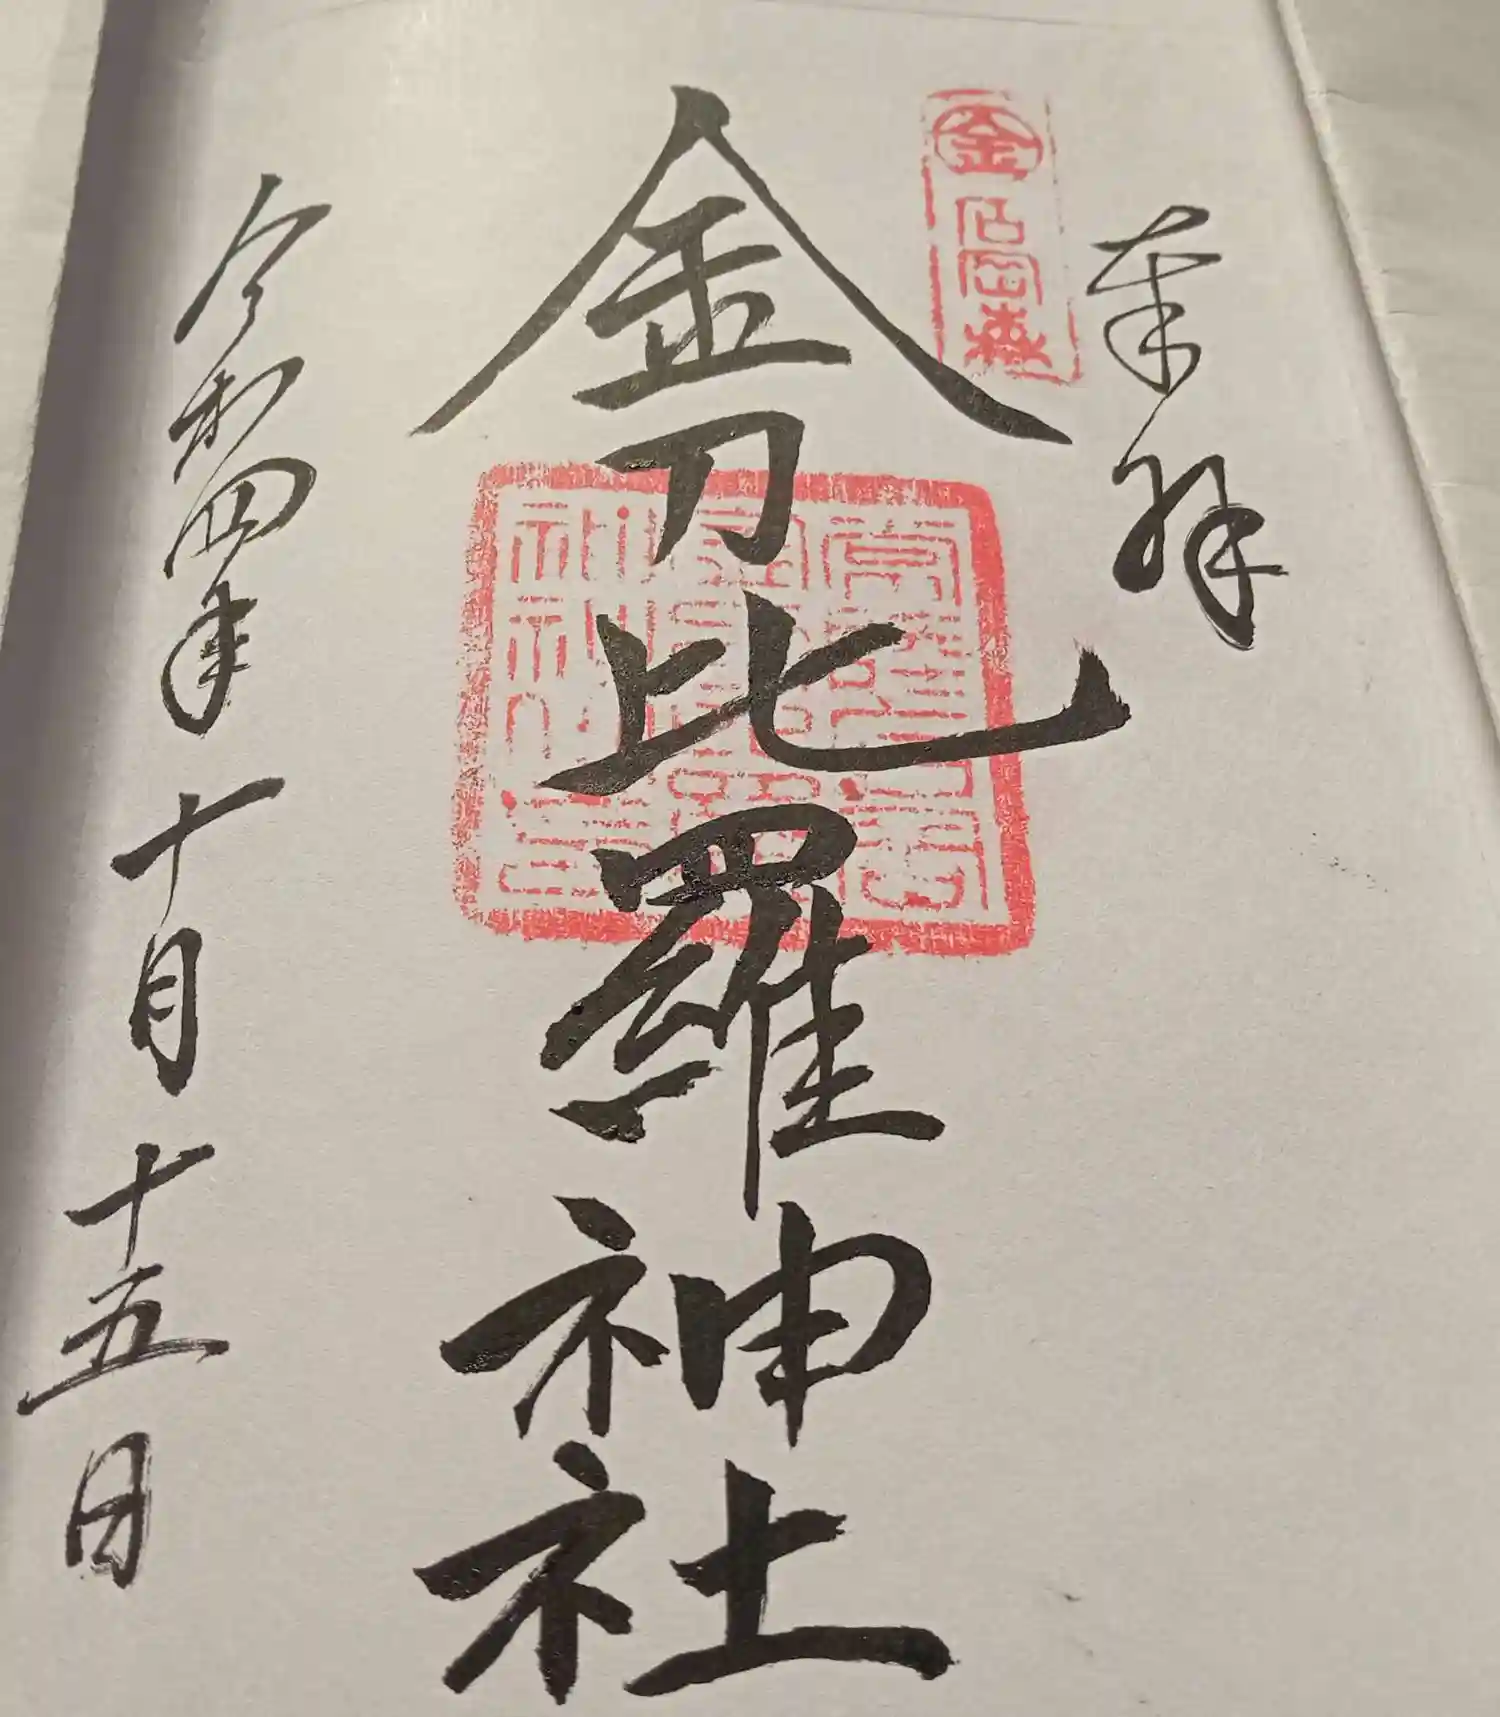 奉拝
金 石岡森
金刀比羅神社
令和四年十月十五日